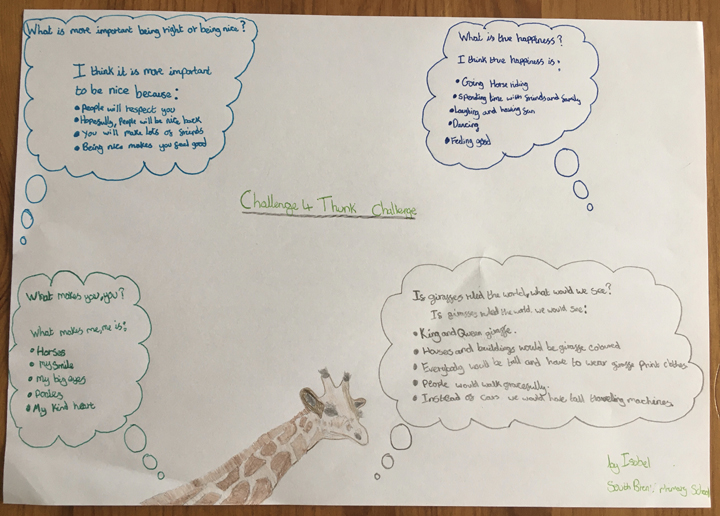 What is more important being right or being nice?
I think it is more important
to be nice because:
• People will respect you
• Hopefully, People will be nice back
• You will make lots of friends
• Being nice makes you feel good
What is true happiness?
I think true happiness is:
• Going Horse riding
• spending time with friends and family
• Laughing and having fun
• Dancing
• Feeling good
Challenge 4 Thunk Challenge
What makes you, you?
What makes me, me is:
• Horses
• My Smile
• My big eyes
• Ponies
• My Kind heart
If giraffes ruled the world, what would we see?
If giraffes ruled the world, we would see:
• King and Queen giraffe.
• Houses and buildings would be giraffe coloured
• Everybody would be tall and have to wear giraffe Print clothes
• People would walk gracefully.
• Instead of cars we would have tall traveling machines
by Isobel
South Primary School